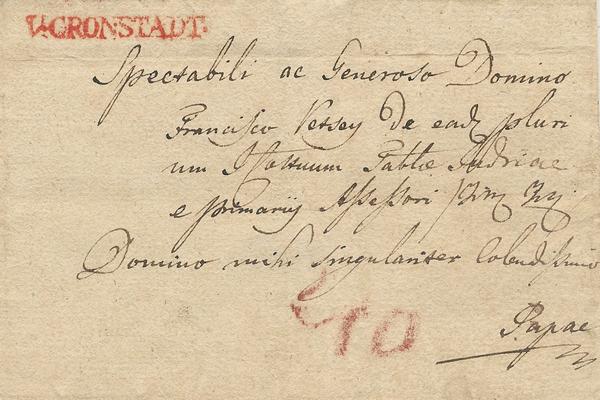 V. CRONSTADT.
Spectabili ac Generoso Domino
Francisco Versey de ead pluri
um I Cottuum Tablæ Judriae
e primarys Assessori
Domino mihi singulariter Colendissimo
10
Papae